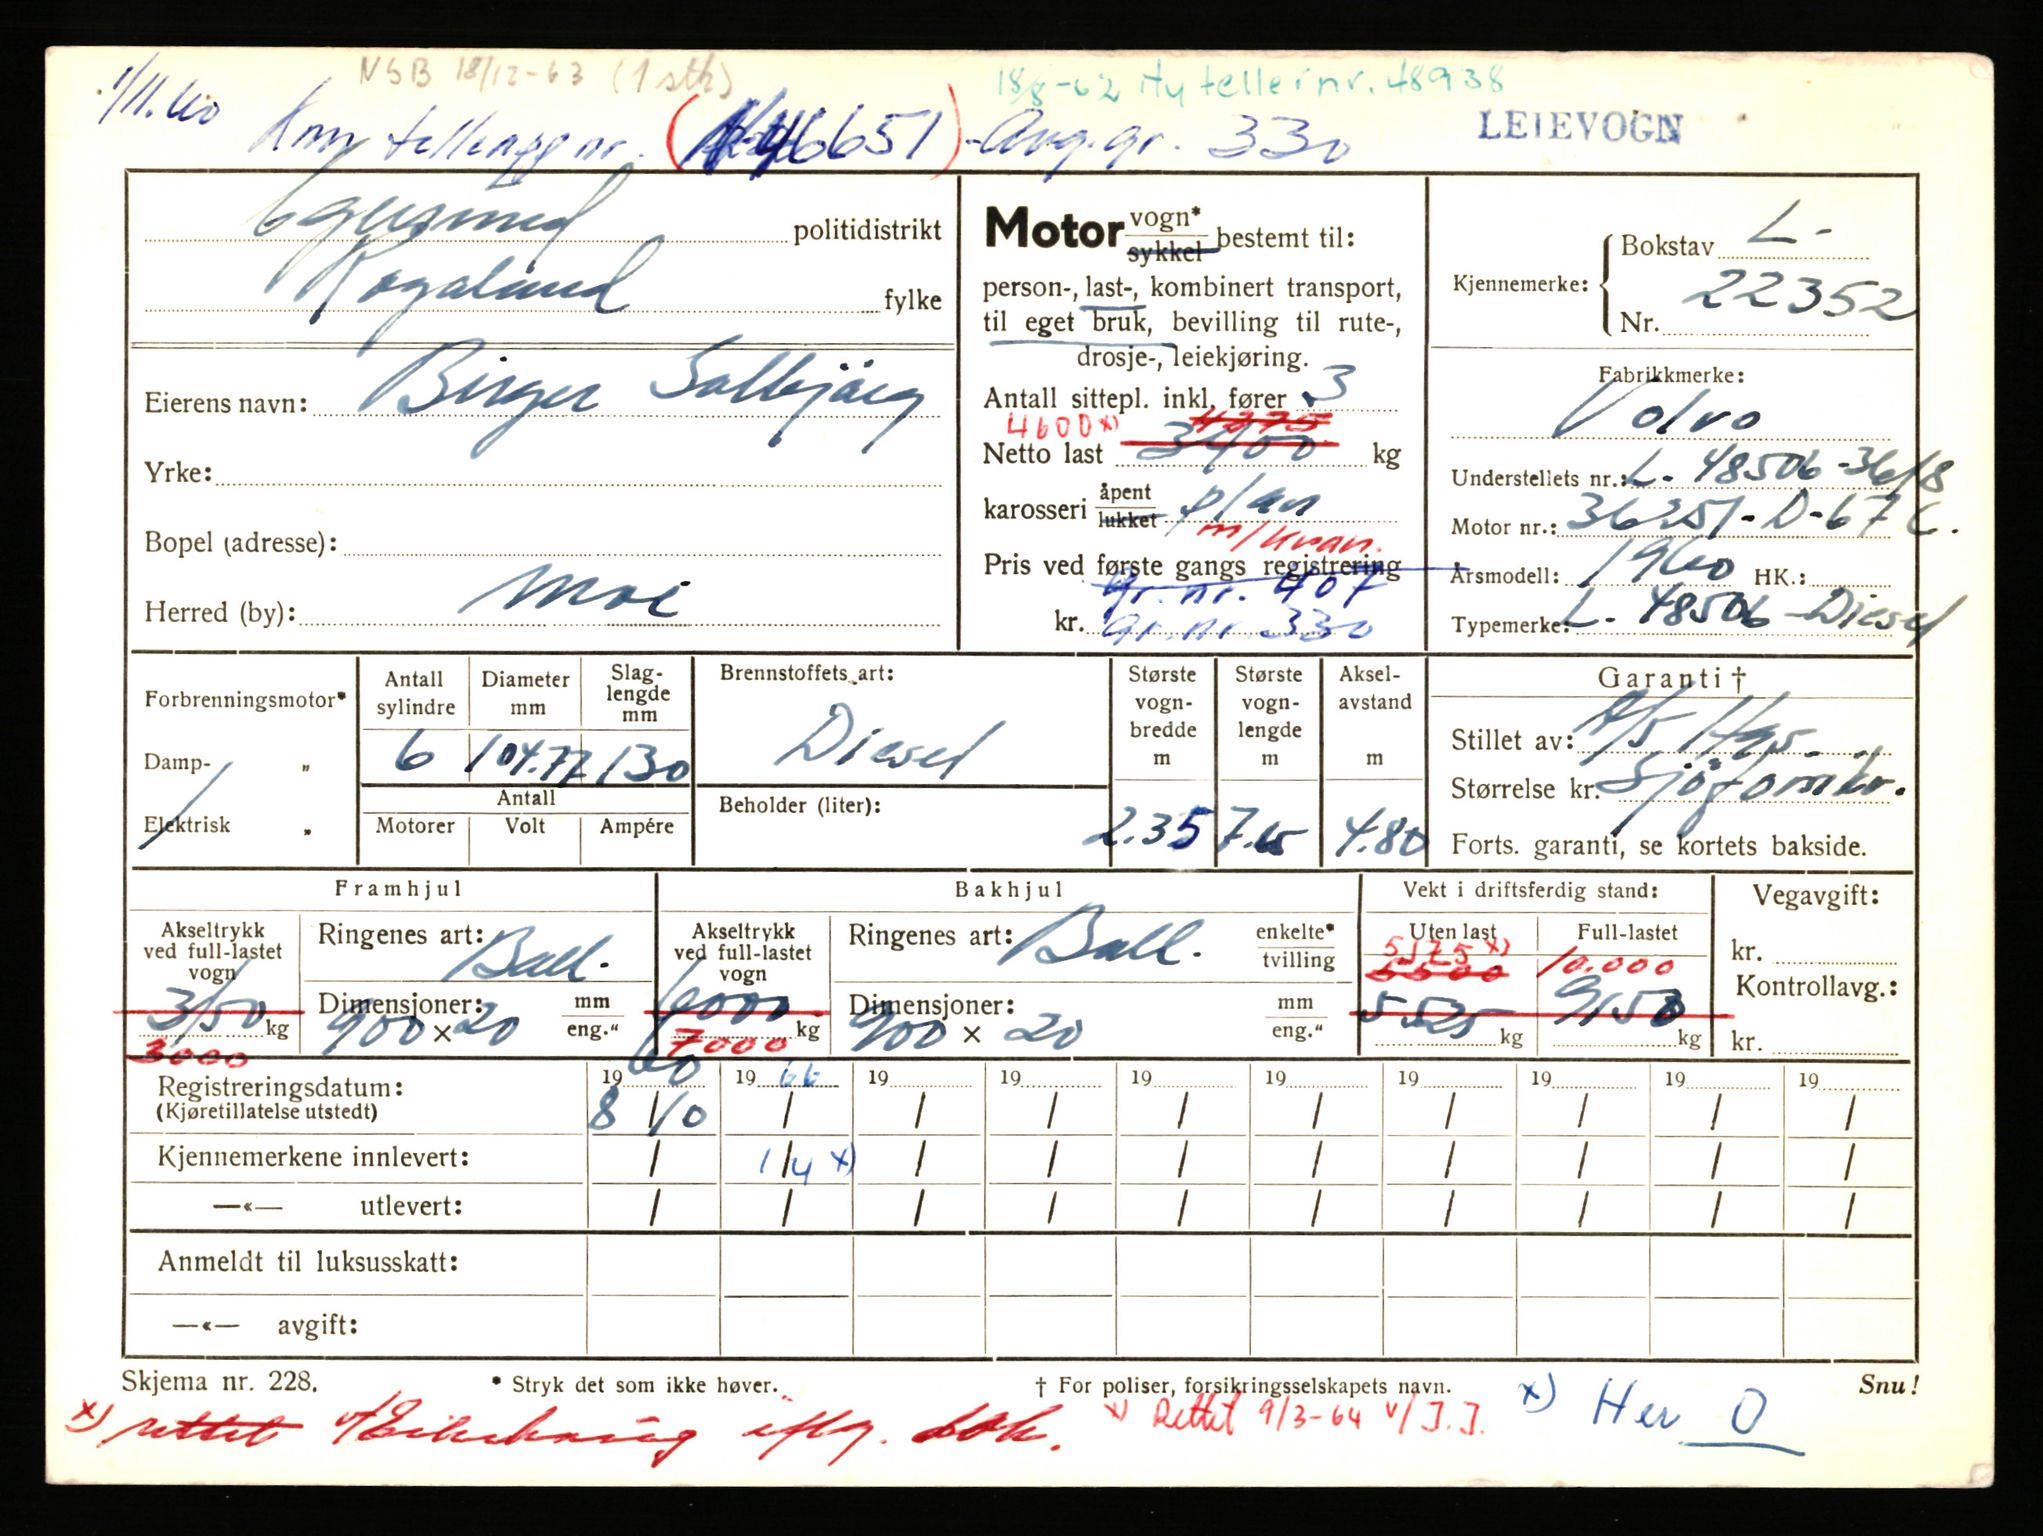 1/11.60
NSB 18/12-63 (1 stk)
18/8-62 Ny teller nr. 48938
Km tellerapp nr. (46651) - Avg.gr. 330
LEIEVOGN
Egersund politidistrikt
Rogaland fylke
Eierens navn: Birger Solbjørg
Yrke:
Bopel (adresse):
Herred (by): Moi
Motor vogn* sykkel bestemt til:
person-, last-, kombinert transport,
til eget bruk, bevilling til rute-,
drosje-, leiekjøring.
Antall sittepl. inkl. fører 3
4600 x) 4375
Netto last 3400 kg
karosseri åpent lukket plan
m/kran.
Pris ved første gangs registrering
gr. nr. 407
kr. gr. nr. 330
Kjennemerke: Bokstav L-
Nr. 22352
Fabrikkmerke:
Volvo
Understellets nr.: L. 48506-3618
Motor nr.: 36351-D-67 C.
Årsmodell: 1960 HK.:
Typemerke: L. 48506-Diesel
Forbrenningsmotor*
Damp- „
Elektrisk „
Antall sylindre
Diameter mm
Slaglengde mm
6 104.77 130
Antall
Motorer Volt Ampére
Brennstoffets art:
Diesel
Beholder (liter):
Største vogn-bredde m
2.35
Største vogn-lengde m
7.65
Aksel-avstand m
4.80
Garanti †
Stillet av: A/S Nye
Størrelse kr. Sjøforsikr.
Forts. garanti, se kortets bakside.
Framhjul
Akseltrykk ved full-lastet vogn
3150 kg
3000
Ringenes art: Ball.
Dimensjoner: mm
900 × 20 eng."
Bakhjul
Akseltrykk ved full-lastet vogn
6000 kg
7000
Ringenes art: Ball. enkelte* tvilling
Dimensjoner: mm
900 × 20 eng."
Vekt i driftsferdig stand:
Uten last Full-lastet
5175 x)
5500 10.000
5525 kg 9150 kg
Vegavgift:
kr.
Kontrollavg.:
kr.
Registreringsdatum: 1960 1966 19 19 19 19 19 19 19 19
(Kjøretillatelse utstedt) 8/10 / / / / / / / / /
Kjennemerkene innlevert: / 1/4 x) / / / / / / / /
—«— utlevert: / / / / / / / / / /
Anmeldt til luksusskatt:
—«— avgift:
Skjema nr. 228.
* Stryk det som ikke høver.
† For poliser, forsikringsselskapets navn.
Snu!
x) rettet
x) Rettet 9/3-64 v/ J.J.
x) Her O